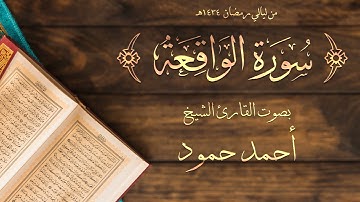 من ليالي رمضان ١٤٣٤هـ
سُورَة الوَاقِعَة
بصوت القارئ الشيخ
أحمد حمود